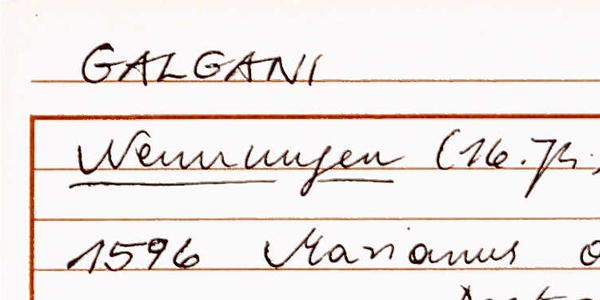 GALGANI
Nennungen (16. Jh.,
1596 Marianus